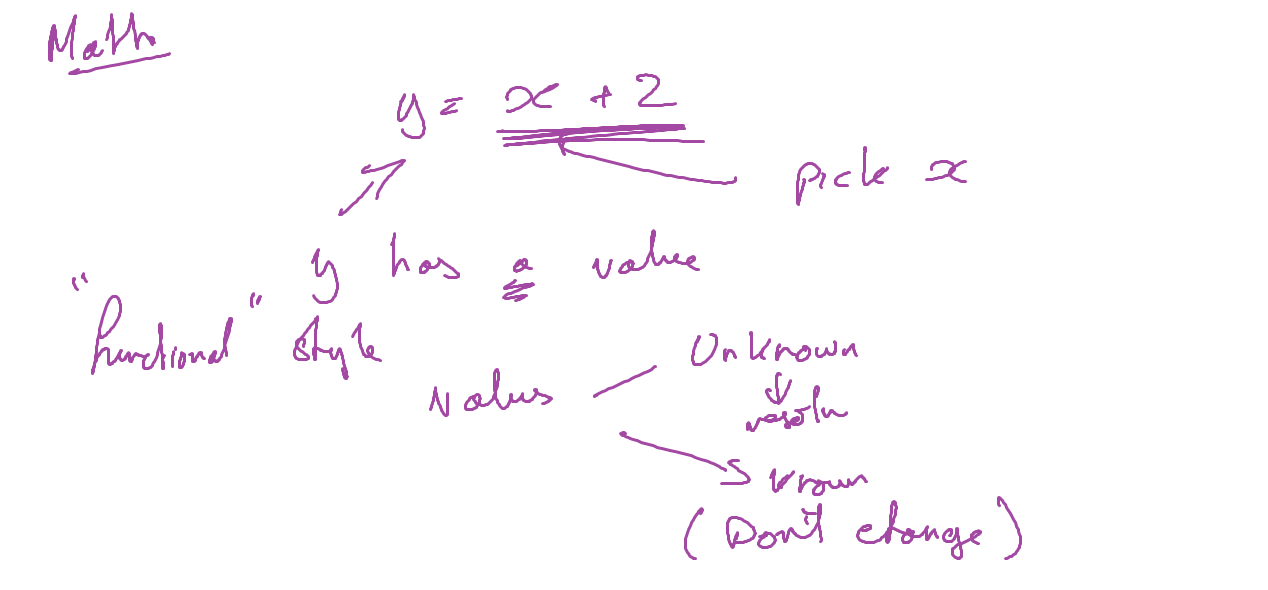 Math
y = x + 2
pick x
y has a value
"functional" style
Values
Unknown
resolve
Known
(Don't change)